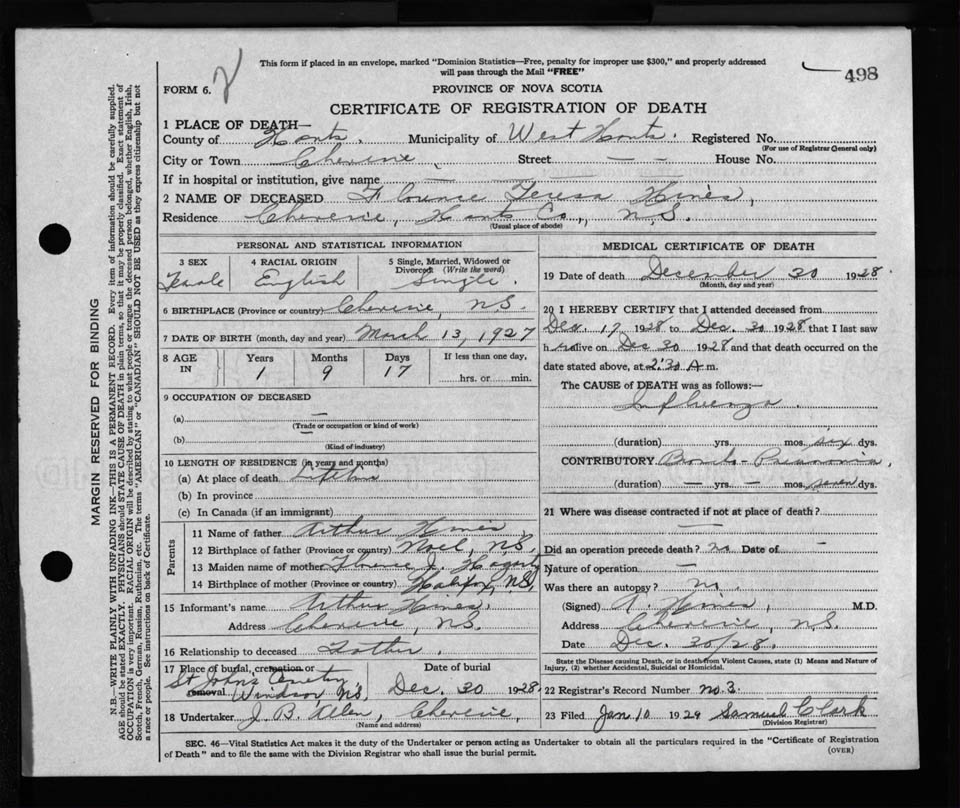 This form if placed in an envelope, marked "Dominion Statistics—Free, penalty for improper use $300," and properly addressed
will pass through the Mail "FREE"
498
FORM 6.
PROVINCE OF NOVA SCOTIA
CERTIFICATE OF REGISTRATION OF DEATH
MARGIN RESERVED FOR BINDING
N.B.—WRITE PLAINLY WITH UNFADING INK—THIS IS A PERMANENT RECORD. Every item of information should be carefully supplied.
AGE should be stated EXACTLY. PHYSICIANS should STATE CAUSE OF DEATH in plain terms, so that it may be properly classified. Exact statement of
OCCUPATION is very important. RACIAL ORIGIN will be described by stating to what people or tongue the deceased person belonged, whether English, Irish,
Scotch, French, German, Russian, Ruthenian, etc. The terms "AMERICAN" or "CANADIAN" SHOULD NOT BE USED as they express citizenship but not
a race or people. See instructions on back of Certificate.
1 PLACE OF DEATH—
County of Hants. Municipality of West Hants. Registered No.
(For use of Registrar General only)
City or Town Cheverie, Street — — House No.
If in hospital or institution, give name — — — —
2 NAME OF DECEASED Florence Teresa Hines,
Residence Cheverie, Hants Co., N.S.
(Usual place of abode)
PERSONAL AND STATISTICAL INFORMATION
3 SEX 4 RACIAL ORIGIN 5 Single, Married, Widowed or
Divorced (Write the word)
Female English Single.
6 BIRTHPLACE (Province or country) Cheverie, N.S.
7 DATE OF BIRTH (month, day and year) March 13, 1927
8 AGE IN Years Months Days If less than one day,
1 9 17 hrs. or min.
9 OCCUPATION OF DECEASED
(a) —
(Trade or occupation or kind of work)
(b)
(Kind of industry)
10 LENGTH OF RESIDENCE (in years and months)
(a) At place of death
(b) In province
(c) In Canada (if an immigrant)
Parents
11 Name of father Arthur Hines
12 Birthplace of father (Province or country) Noel, N.S.
13 Maiden name of mother Florence J.
14 Birthplace of mother (Province or country) Halifax, N.S.
15 Informant's name Arthur Hines.
Address Cheverie, N.S.
16 Relationship to deceased Father.
17 Place of burial, cremation or
removal Date of burial
St. Johns Cemetery
Windsor, N.S. Dec. 30 1928.
18 Undertaker J. B. Allen, Cheverie,
(Name and address)
MEDICAL CERTIFICATE OF DEATH
19 Date of death December 30 1928.
(Month, day and year)
20 I HEREBY CERTIFY that I attended deceased from
Dec. 17 1928 to Dec. 30 1928 that I last saw
h er alive on Dec 30 1928 and that death occurred on the
date stated above, at 2.30 A m.
The CAUSE of DEATH was as follows:—
Influenza.
(duration) yrs. mos. six dys.
CONTRIBUTORY Broncho-Pneumonia,
(duration) — yrs. — mos. seven dys.
21 Where was disease contracted if not at place of death?
—
Did an operation precede death? no Date of —
Nature of operation —
Was there an autopsy? no.
(Signed) A. Hines, M.D.
Address Cheverie, N.S.
Date Dec. 30/28.
State the Disease causing Death, or in death from Violent Causes, state (1) Means and Nature of
Injury, (2) whether Accidental, Suicidal or Homicidal.
22 Registrar's Record Number no 3.
23 Filed Jan 10 1929 Samuel Clark
(Division Registrar)
SEC. 46—Vital Statistics Act makes it the duty of the Undertaker or person acting as Undertaker to obtain all the particulars required in the "Certificate of Registration
of Death" and to file the same with the Division Registrar who shall issue the burial permit.
(OVER)